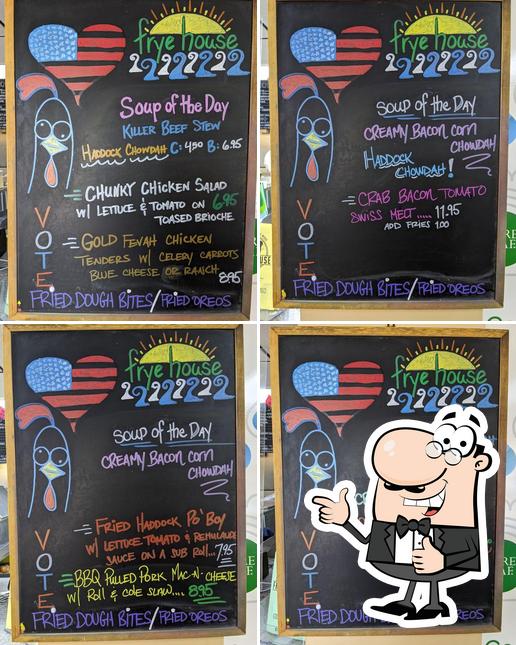 frye house
Soup of the Day
KILLER BEEF STEW
HADDOCK CHOWDAH C: 4.50 B: 6.95
CHUNKY CHICKEN SALAD
W/ LETTUCE & TOMATO ON 6.95
TOASED BRIOCHE
GOLD FEVAH CHICKEN
TENDERS W/ CELERY CARROTS
BLUE CHEESE OR RANCH 8.95
VOTE
FRIED DOUGH BITES/FRIED OREOS
frye house
SOUP OF THE DAY
CREAMY BACON CORN
CHOWDAH
HADDOCK
CHOWDAH!
CRAB BACON TOMATO
SWISS MELT..... 11.95
ADD FRIES 1.00
VOTE
FRIED DOUGH BITES/FRIED OREOS
frye house
SOUP OF THE DAY
CREAMY BACON CORN
CHOWDAH
FRIED HADDOCK PO'BOY
W/ LETTUCE TOMATO & REMULAUDE
SAUCE ON A SUB ROLL... 7.95
BBQ PULLED PORK MAC-N-CHEESE
W/ ROLL & COLE SLAW.... 8.95
VOTE
FRIED DOUGH BITES/FRIED OREOS
frye house
VOTE
FRIED OREOS